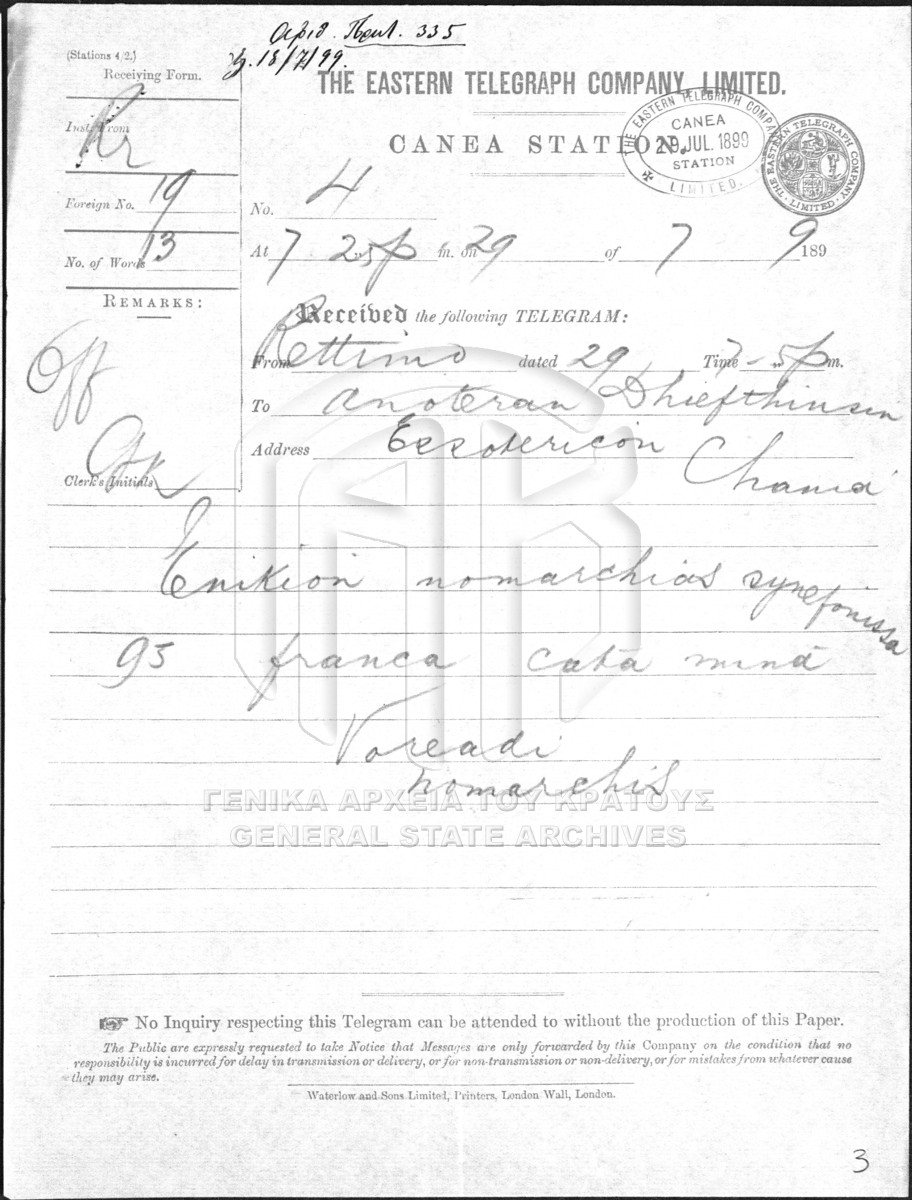 Αριθ. Πρωτ. 335
18/7/99.
(Stations 4/2,)
Receiving Form.
Inst. From
Rr
Foreign No. 19
No. of Words 13
REMARKS:
Off
Clerk's Initials
THE EASTERN TELEGRAPH COMPANY, LIMITED.
CANEA STATION.
THE EASTERN TELEGRAPH COMPANY
CANEA
29 JUL. 1899
STATION
LIMITED.
THE EASTERN TELEGRAPH COMPANY
LIMITED
No. 4
At 7 25 p m. on 29 of 7 1899
Received the following TELEGRAM:
From Rettimo dated 29 Time 7-5 p m.
To Anoteran Dhiefthinsin
Address Essotericon
Chania
Enikion nomarchias synefonissa
95 franca cata mina
Voreadi
nomarchis
ΓΕΝΙΚΑ ΑΡΧΕΙΑ ΤΟΥ ΚΡΑΤΟΥΣ
GENERAL STATE ARCHIVES
☞ No Inquiry respecting this Telegram can be attended to without the production of this Paper.
The Public are expressly requested to take Notice that Messages are only forwarded by this Company on the condition that no
responsibility is incurred for delay in transmission or delivery, or for non-transmission or non-delivery, or for mistakes from whatever cause
they may arise.
Waterlow and Sons Limited, Printers, London Wall, London.
3